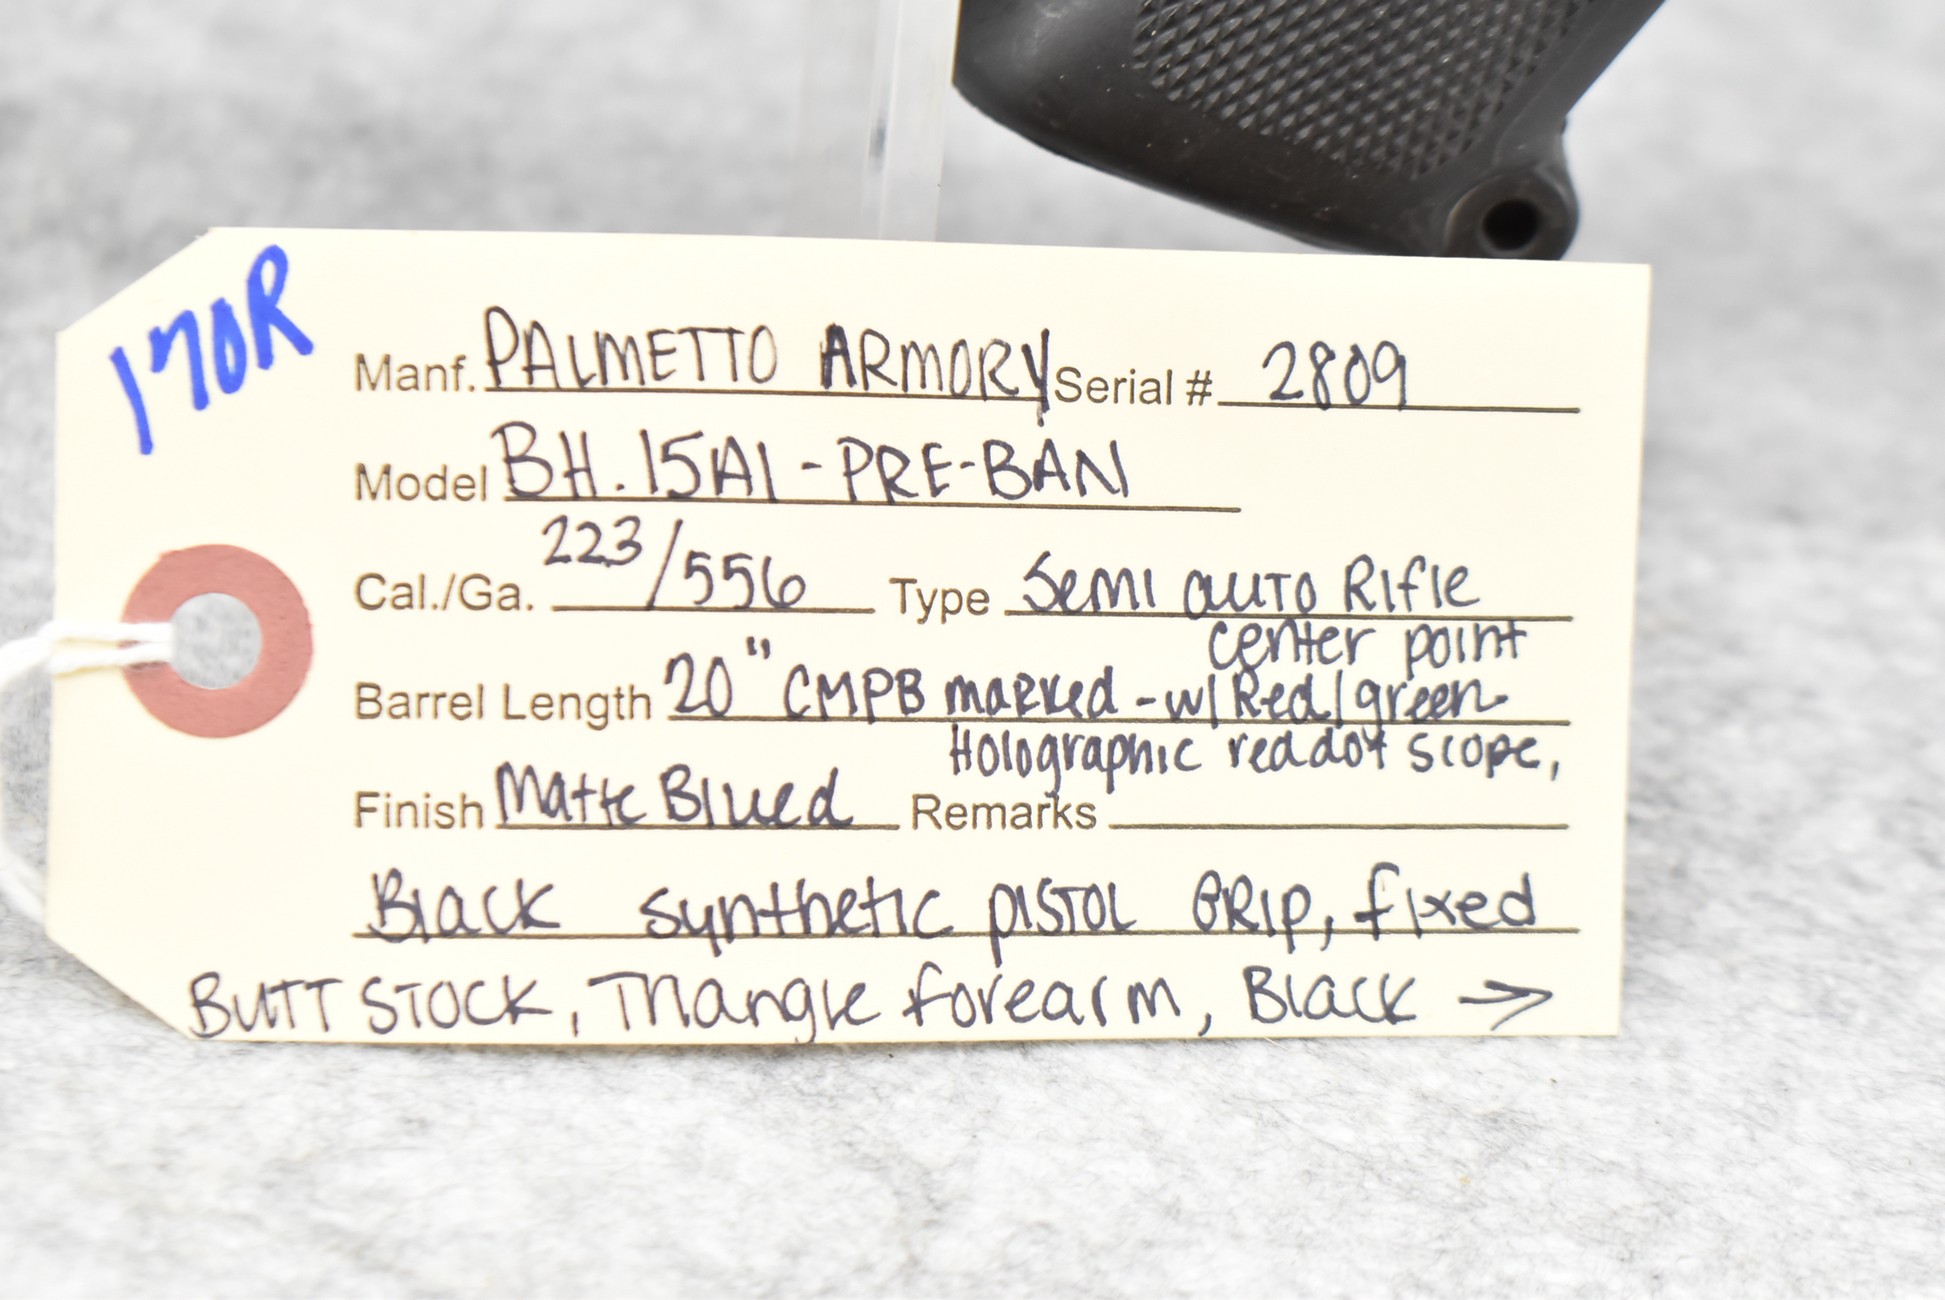 170R
Manf. PALMETTO ARMORY Serial # 2809
Model BH.15A1 - PRE-BAN
Cal./Ga. 223/556 Type Semi auto Rifle
center point
Barrel Length 20" CMPB marked - w/ Red/green
Holographic reddot scope,
Finish Matte Blued Remarks
Black synthetic pistol GRIP, fixed
BUTT STOCK, Triangle forearm, Black →